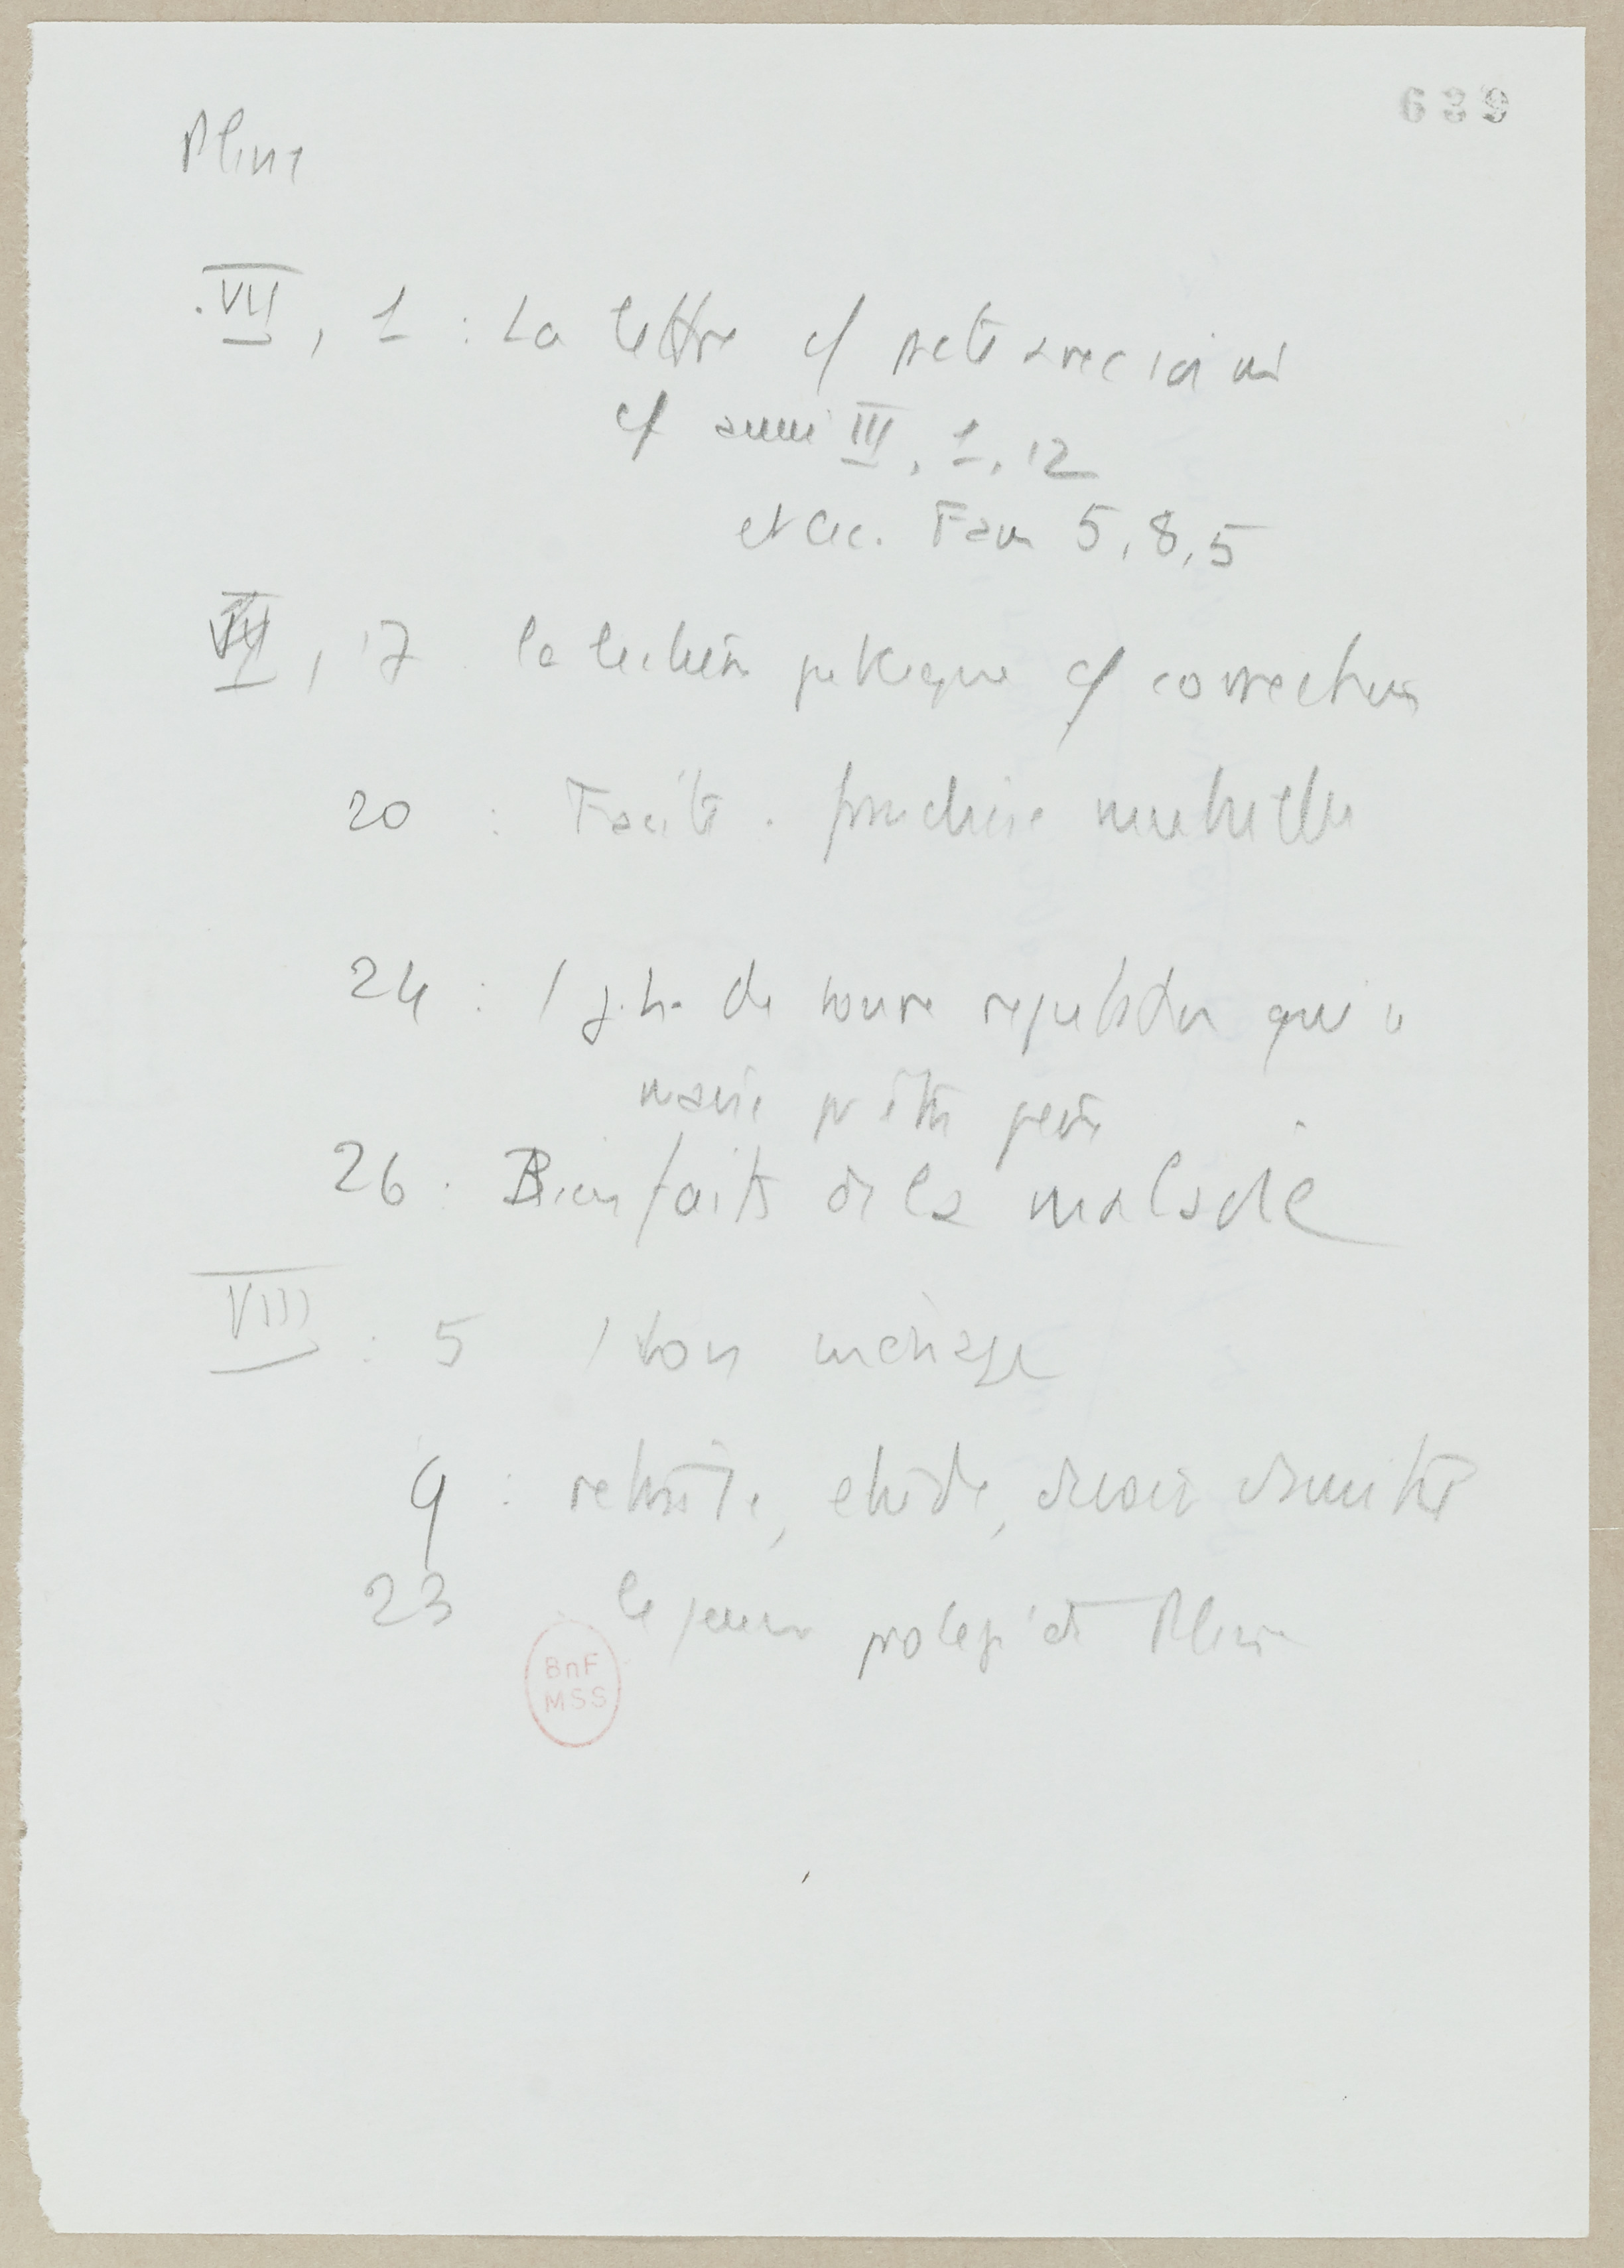 689
Pline
VII, 1 : La lettre cf pacte avec soi même
cf aussi III, 1, 12
et Cic. Fam 5, 8, 5
VII, 17 la lecture publique cf correction
20 : Tacite. mutuelle
24 : 1 j.h. de bonne réputation qui
marié
26 : Bienfaits de la maladie
VIII : 5 1 bon ménage
9 : retraite, étude, devoir d'amitié
23 le jeune protégé de Pline
BnF
MSS